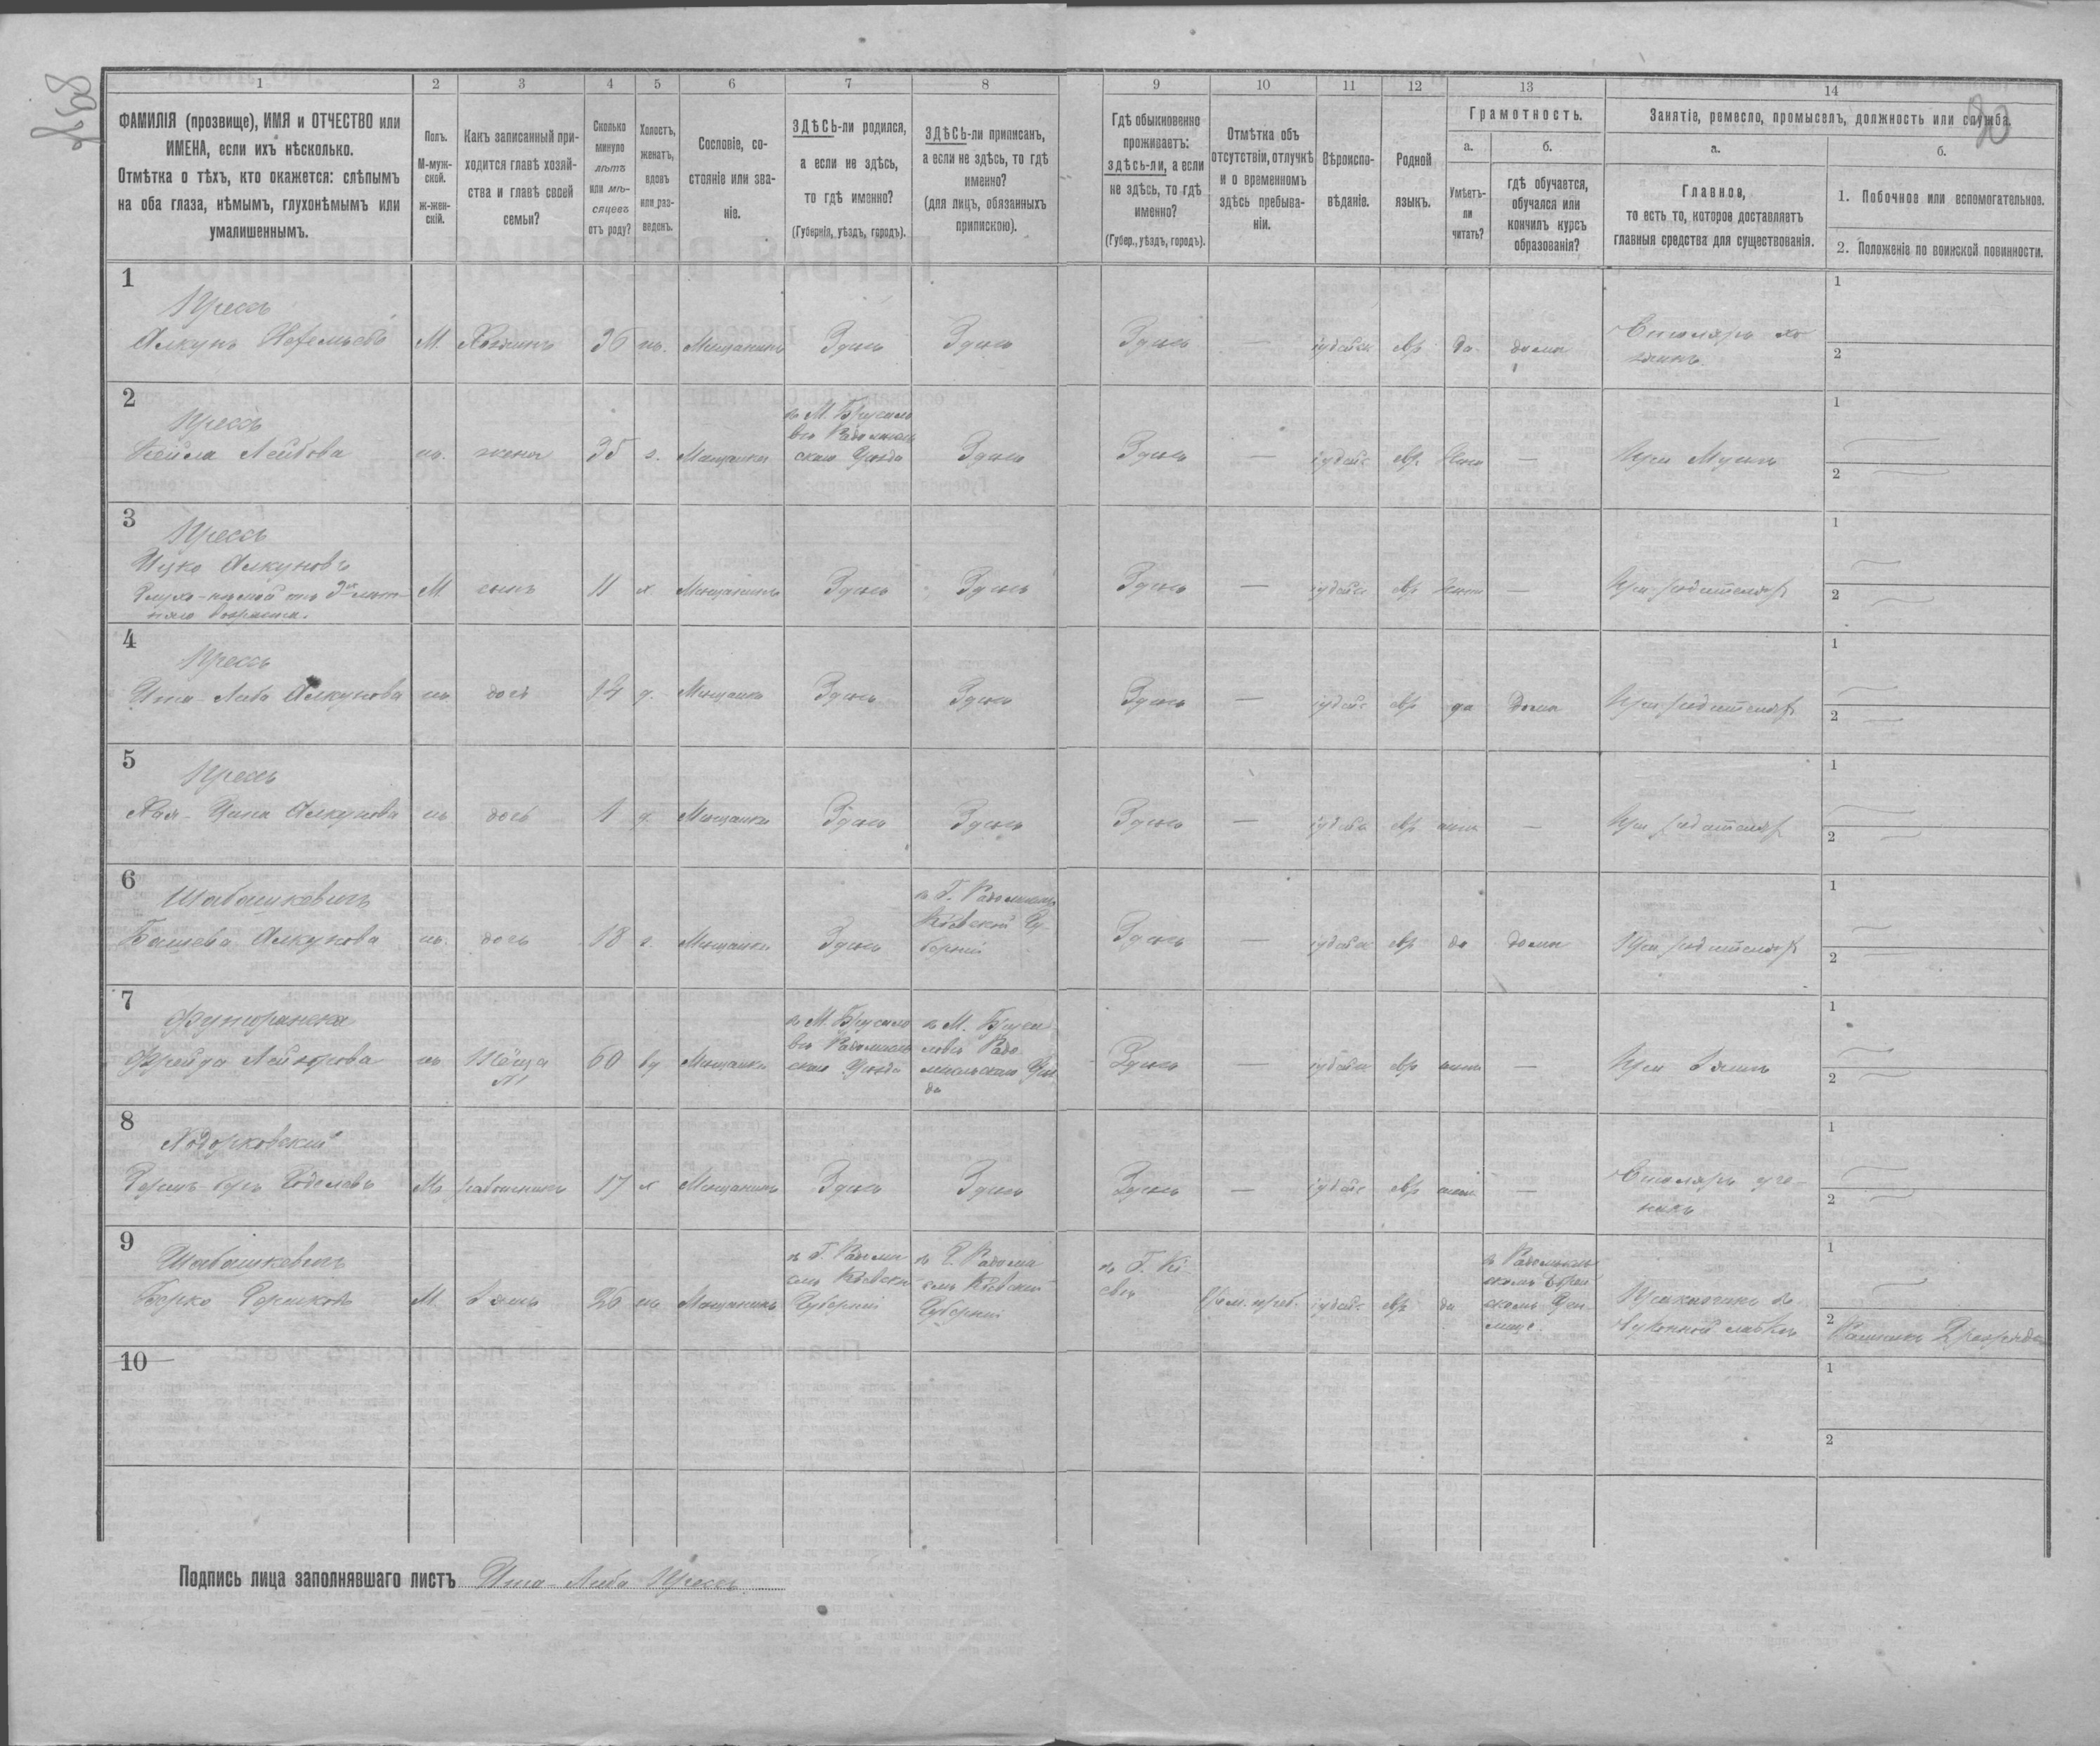 1
2
3
4
5
6
7
8
9
10
11
12
13
14
ФАМИЛІЯ (прозвище), ИМЯ и ОТЧЕСТВО или
ИМЕНА, если ихъ нѣсколько.
Отмѣтка о тѣхъ, кто окажется: слѣпымъ
на оба глаза, нѣмымъ, глухонѣмымъ или
умалишеннымъ.
Полъ.
М-муж-
ской.
Ж-жен-
скій.
Какъ записанный при-
ходится главѣ хозяй-
ства и главѣ своей
семьи?
Сколько
минуло
лѣтъ
или мѣ-
сяцевъ
отъ роду?
Холостъ,
женатъ,
вдовъ
или раз-
веденъ.
Сословіе, со-
стояніе или зва-
ніе.
ЗДѢСЬ-ли родился,
а если не здѣсь,
то гдѣ именно?
(Губернія, уѣздъ, городъ).
ЗДѢСЬ-ли приписанъ,
а если не здѣсь, то гдѣ
именно?
(для лицъ, обязанныхъ
припискою).
Гдѣ обыкновенно
проживаетъ:
здѣсь-ли, а если
не здѣсь, то гдѣ
именно?
(Губер., уѣздъ, городъ).
Отмѣтка объ
отсутствіи, отлучкѣ
и о временномъ
здѣсь пребыва-
ніи.
Вѣроиспо-
вѣданіе.
Родной
языкъ.
Грамотность.
а.
Умѣетъ-
ли
читать?
б.
гдѣ обучается,
обучался или
кончилъ курсъ
образованія?
Занятіе, ремесло, промыселъ, должность или служба.
а.
Главное,
то есть то, которое доставляетъ
главныя средства для существованія.
б.
1. Побочное или вспомогательное.
2. Положеніе по воинской повинности.
80
1
Прессъ
Алкунъ М. Хозяинъ 36 ж. Мещанинъ Здѣсь Здѣсь Здѣсь — іудейск евр да дома Столяръ хо
зяинъ
1
2
2
Прессъ
Лейбова ж. жена 35 з. Мещанка
в М. Брусило
вѣ Радомысль
скаго Уѣзда
Здѣсь Здѣсь — іудейс евр. — При Мужѣ
1
2
3
Прессъ
Ицко Алкуновъ
Глухо-нѣмой отъ 3х лѣт-
няго возраста.
М сынъ 11 х Мещанинъ Здѣсь Здѣсь Здѣсь — іудейс евр — При родителях
1
2
4
Прессъ
Ита-Либа Алкунова ж дочь 14 д. Мещанка Здѣсь Здѣсь Здѣсь — іудейс евр да Дома При родителях
1
2
5
Прессъ
Хая-Алкунова ж дочь 1 д. Мещанка Здѣсь Здѣсь Здѣсь — іудейс евр — При родителях
1
2
6
Шабашкевичъ
Башева Алкунова ж. дочь 18 з. Мещанка Здѣсь
в Г. Радомысль
Кіевской Гу
берніи
Здѣсь — іудейск евр да дома При родителях
1
2
7
Фрейда ж Тёща 60 вд Мещанка
в М. Брусило
вѣ Радомысль
скаго Уѣзда
в М. Бруси
ловѣ Радо
мысльскаго Уѣз
да
Здѣсь — іудейск евр — При Зятѣ
1
2
8
Ходорковскій
М. работникъ 17 х Мещанинъ Здѣсь Здѣсь Здѣсь — іудейс евр — Столяръ уче-
никъ
1
2
9
Шабашкевичъ
Берко М. Зять 26 ж Мещанинъ
в Г. Радомы
слѣ Кіевской
Губерніи
в Г. Радомы
слѣ Кіевской
Губерніи
в Г. Кі
евѣ
Врем. преб. іудейс евр да
в Радомысль
скомъ
скомъ Учи
лищѣ
Прикащикъ в
лавкѣ
1
2
10
1
2
Подпись лица заполнявшаго листъ Ита-Либа Прессъ